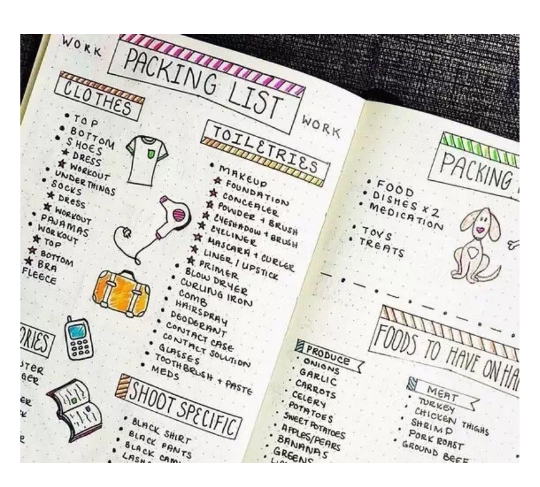 WORK
PACKING LIST
WORK
CLOTHES
• TOP
• BOTTOM
• SHOES
★ DRESS
★ WORKOUT
• UNDERTHINGS
• SOCKS
★ DRESS
★ WORKOUT
• PAJAMAS
• WORKOUT
★ TOP
★ BOTTOM
★ BRA
FLEECE
TOILETRIES
• MAKEUP
★ FOUNDATION
★ CONCEALER
★ POWDER + BRUSH
★ EYESHADOW + BRUSH
★ EYELINER
★ MASCARA + CURLER
★ LINER / LIPSTICK
★ PRIMER
• BLOW DRYER
• CURLING IRON
• COMB
• HAIRSPRAY
• DEODERANT
• CONTACT CASE
• CONTACT SOLUTION
• GLASSES
• TOOTHBRUSH + PASTE
• MEDS
SHOOT SPECIFIC
• BLACK SHIRT
• BLACK PANTS
• BLACK
PACKING
• FOOD
• DISHES x 2
• MEDICATION
• TOYS
• TREATS
FOODS TO HAVE ON HA
PRODUCE
• ONIONS
• GARLIC
• CARROTS
• CELERY
• POTATOES
• SWEET POTATOES
• APPLES/PEARS
• BANANAS
• GREENS
MEAT
• TURKEY
• CHICKEN THIGHS
• SHRIMP
• PORK ROAST
• GROUND BEEF